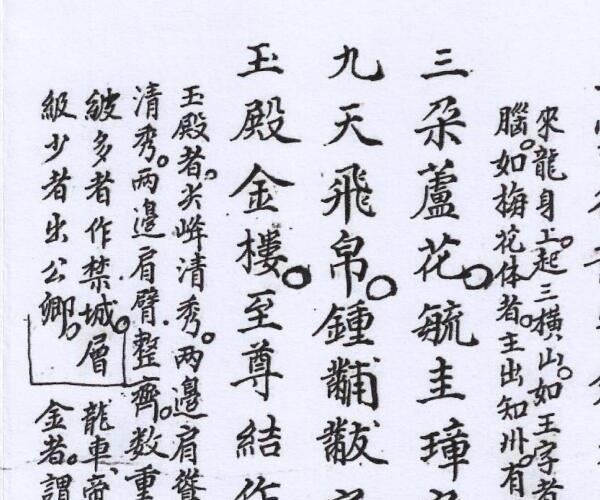 來龍身上。起三橫山。如王字者
腦。如梅花体者。主出知州。有
三朶蘆花。毓圭璋
九天飛帛。鍾黼黻
玉殿金樓。至尊結作
玉殿者。尖峰清秀。兩邊肩聳
清秀。兩邊肩臂整齊。數重
級多者作禁城。層
龍車帝
級少者出公卿。
金者。謂